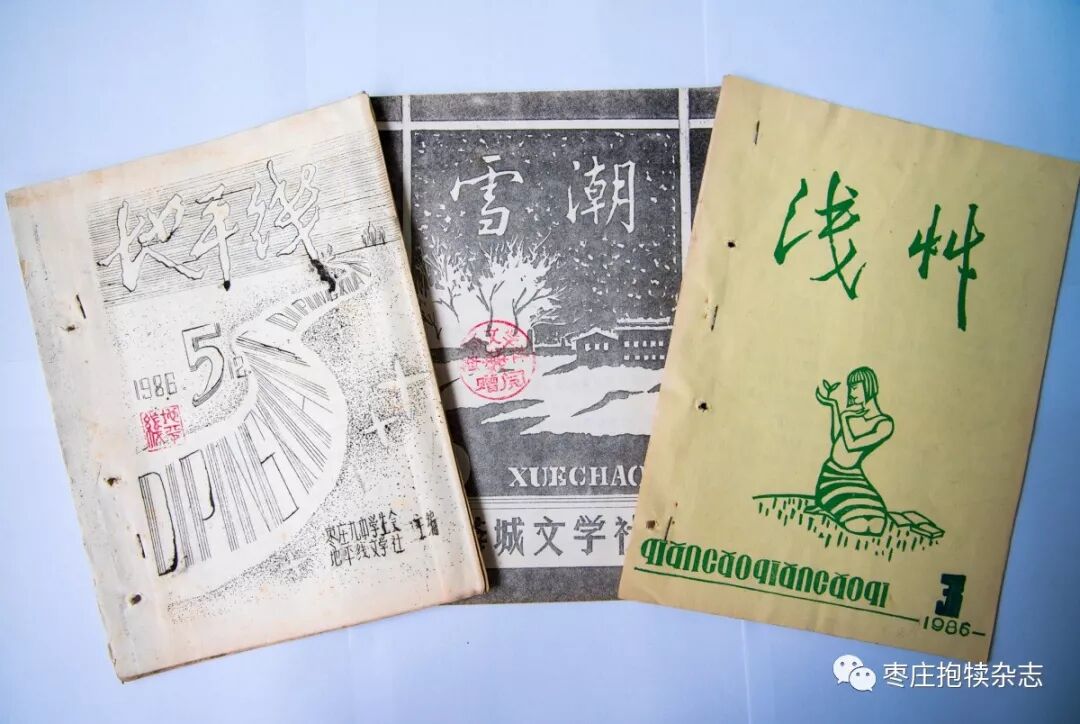 地平线
DIPINGXIAN
1986.5
DIPINGXIAN
枣庄九中学生会
地平线文学社 主编
雪潮
赠阅
XUECHAO
城文学社
浅草
qiǎncǎoqiǎncǎoqi
3
1986
枣庄抱犊杂志